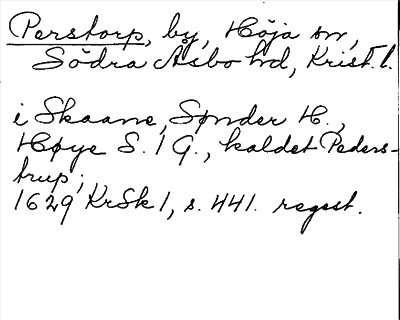 Perstorp, by, Höja sn,
Södra Åsbo hd, Krist. l.
i Skaane, Sønder H.,
Høye S. 1 G., kaldet Peders-
trup;
1629 KrSk 1, s. 441. regest.